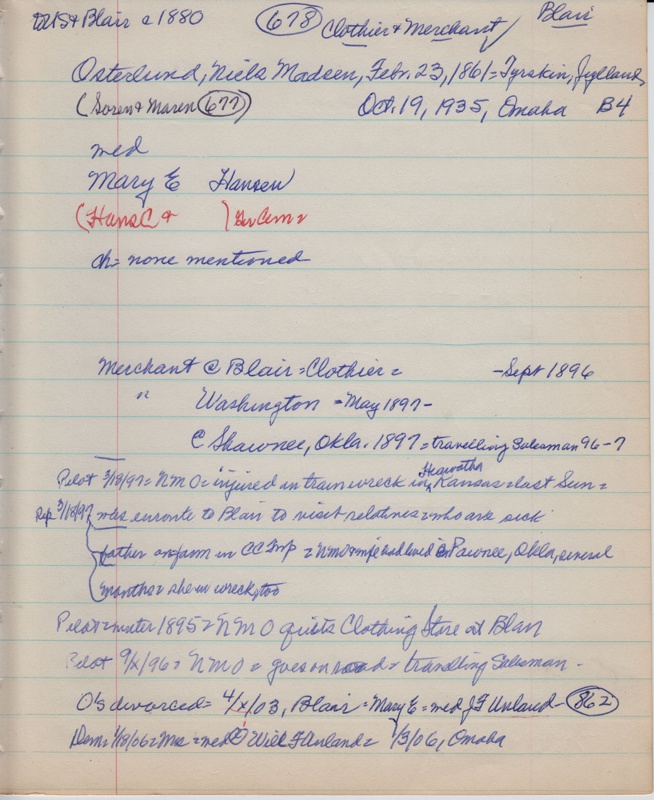 US & Blair c 1880 678 Clothier & Merchant Blair
Osterlund, Niels Madsen, Febr. 23, 1861 = Tyrskin, Jylland
(Soren & Maren 677) Oct. 19, 1935, Omaha B4
med
Mary E Hansen
(Hans C & )
ch = none mentioned
Merchant @ Blair = Clothier = - Sept 1896
" Washington - May 1897 -
C Shawnee, Okla. 1897 = travelling Salesman 96-7
Pilot 3/18/97 = NMO = injured in train wreck in Hiawatha Kansas = last Sun =
Rep 3/18/97 was enroute to Blair to visit relatives = who are sick
father on farm in CC Twp = NMO & wife had lived in Pawnee, Okla, several
months = she in wreck, too
Pilot = winter 1895 = NMO quits Clothing Store at Blair
Pilot 9/x/96 = NMO = goes on road = travelling Salesman -
O's divorced = 4/x/03, Blair = Mary E = med J F Unland - 862
Dem = 1/18/06 = Mrs = med Will F Unland = 1/3/06, Omaha